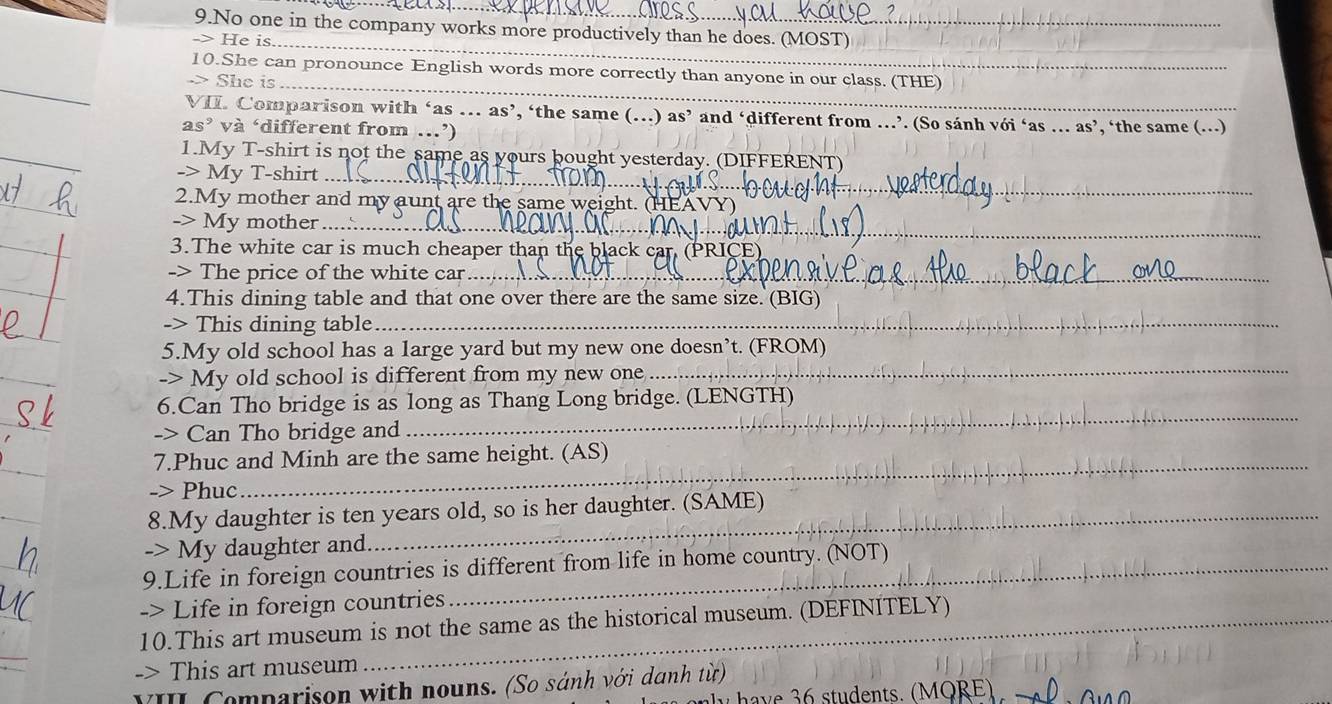 expensive dress you have ?
9.No one in the company works more productively than he does. (MOST)
-> He is
10.She can pronounce English words more correctly than anyone in our class. (THE)
-> She is
VII. Comparison with ‘as ... as’, ‘the same (...) as’ and ‘different from ...’. (So sánh với ‘as ... as’, ‘the same (...)
as’ và ‘different from ...’)
1.My T-shirt is not the same as yours bought yesterday. (DIFFERENT)
-> My T-shirt is diffent from yours bought yesterday
2.My mother and my aunt are the same weight. (HEAVY)
-> My mother 's as heavy as my aunt (is)
3.The white car is much cheaper than the black car. (PRICE)
-> The price of the white car is not as expensive as the black one
4.This dining table and that one over there are the same size. (BIG)
-> This dining table
5.My old school has a large yard but my new one doesn’t. (FROM)
-> My old school is different from my new one
6.Can Tho bridge is as long as Thang Long bridge. (LENGTH)
-> Can Tho bridge and
7.Phuc and Minh are the same height. (AS)
-> Phuc
8.My daughter is ten years old, so is her daughter. (SAME)
-> My daughter and
9.Life in foreign countries is different from life in home country. (NOT)
-> Life in foreign countries
10.This art museum is not the same as the historical museum. (DEFINITELY)
-> This art museum
VIII. Comparison with nouns. (So sánh với danh từ)
only have 36 students. (MORE)